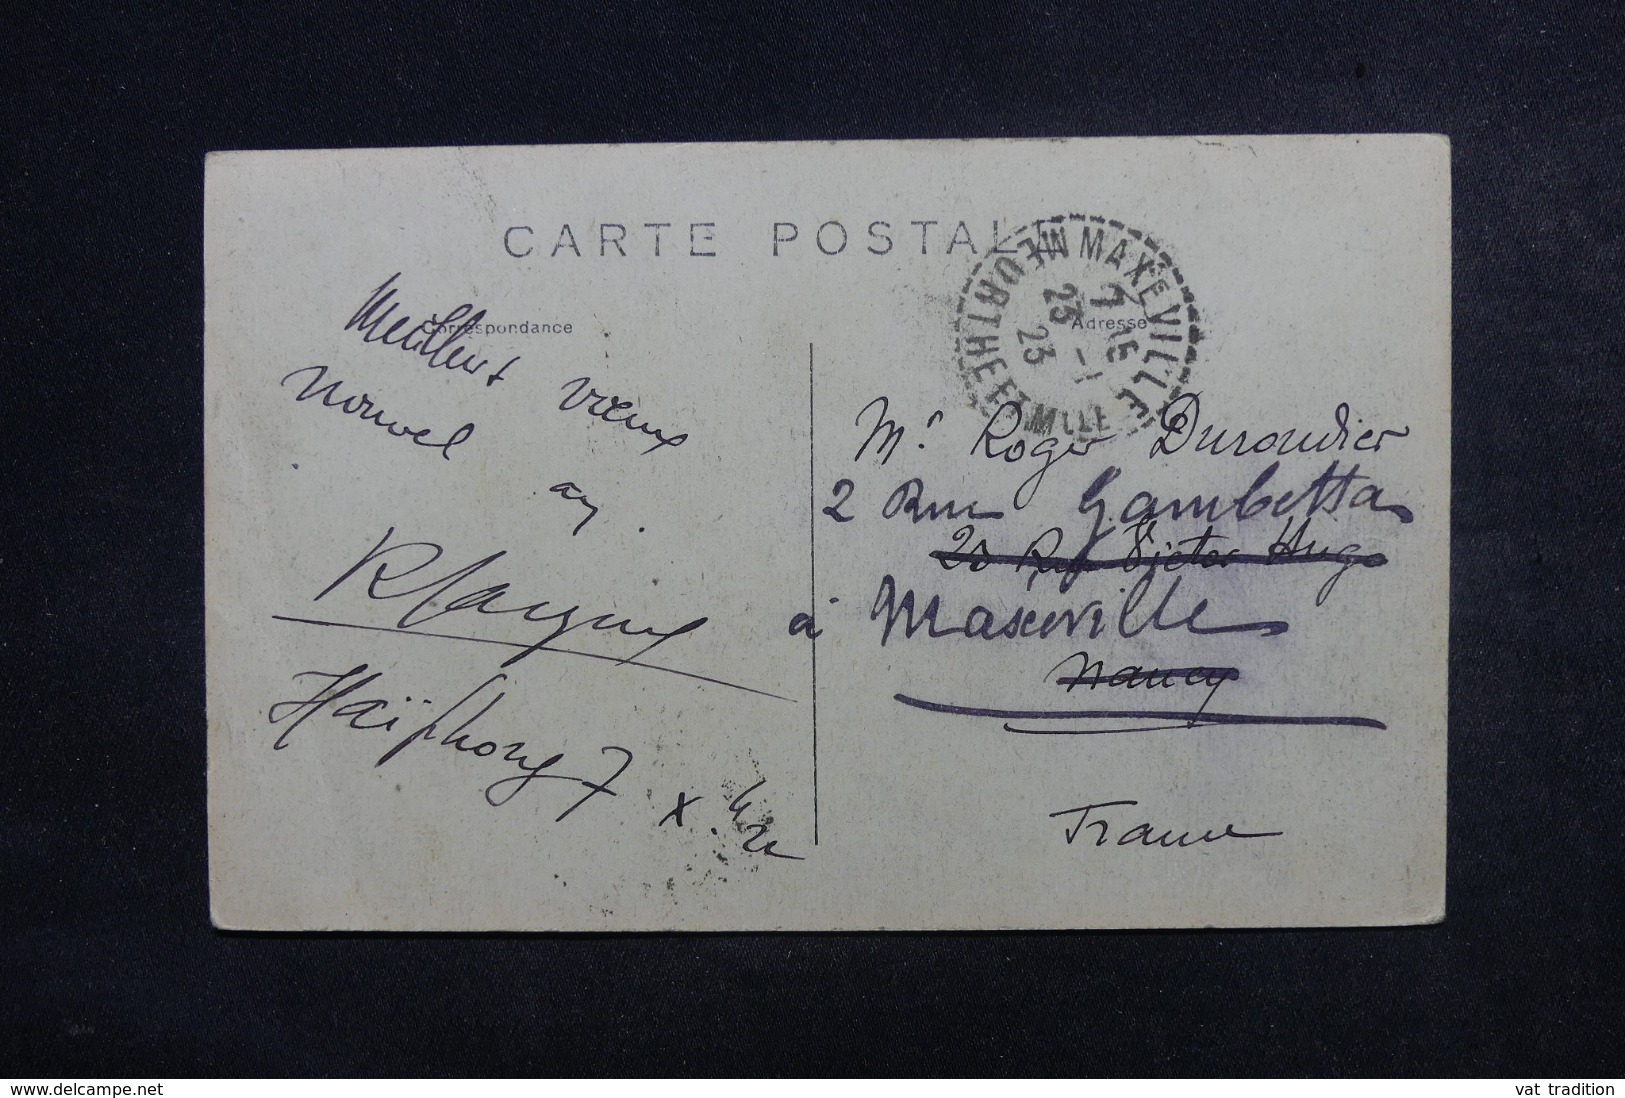 CARTE POSTALE
Correspondance
Adresse
MAXÉVILLE
MEURTHE ET MLLE
7 15
23 - 1
23
Meilleurs vœux
nouvel
an.
Haïphong 7 X.
Mr Roger Durondier
2 Rue Gambetta
20 Rue Victor Hugo
à Maxeville
Nancy
France
www.delcampe.net
vat tradition